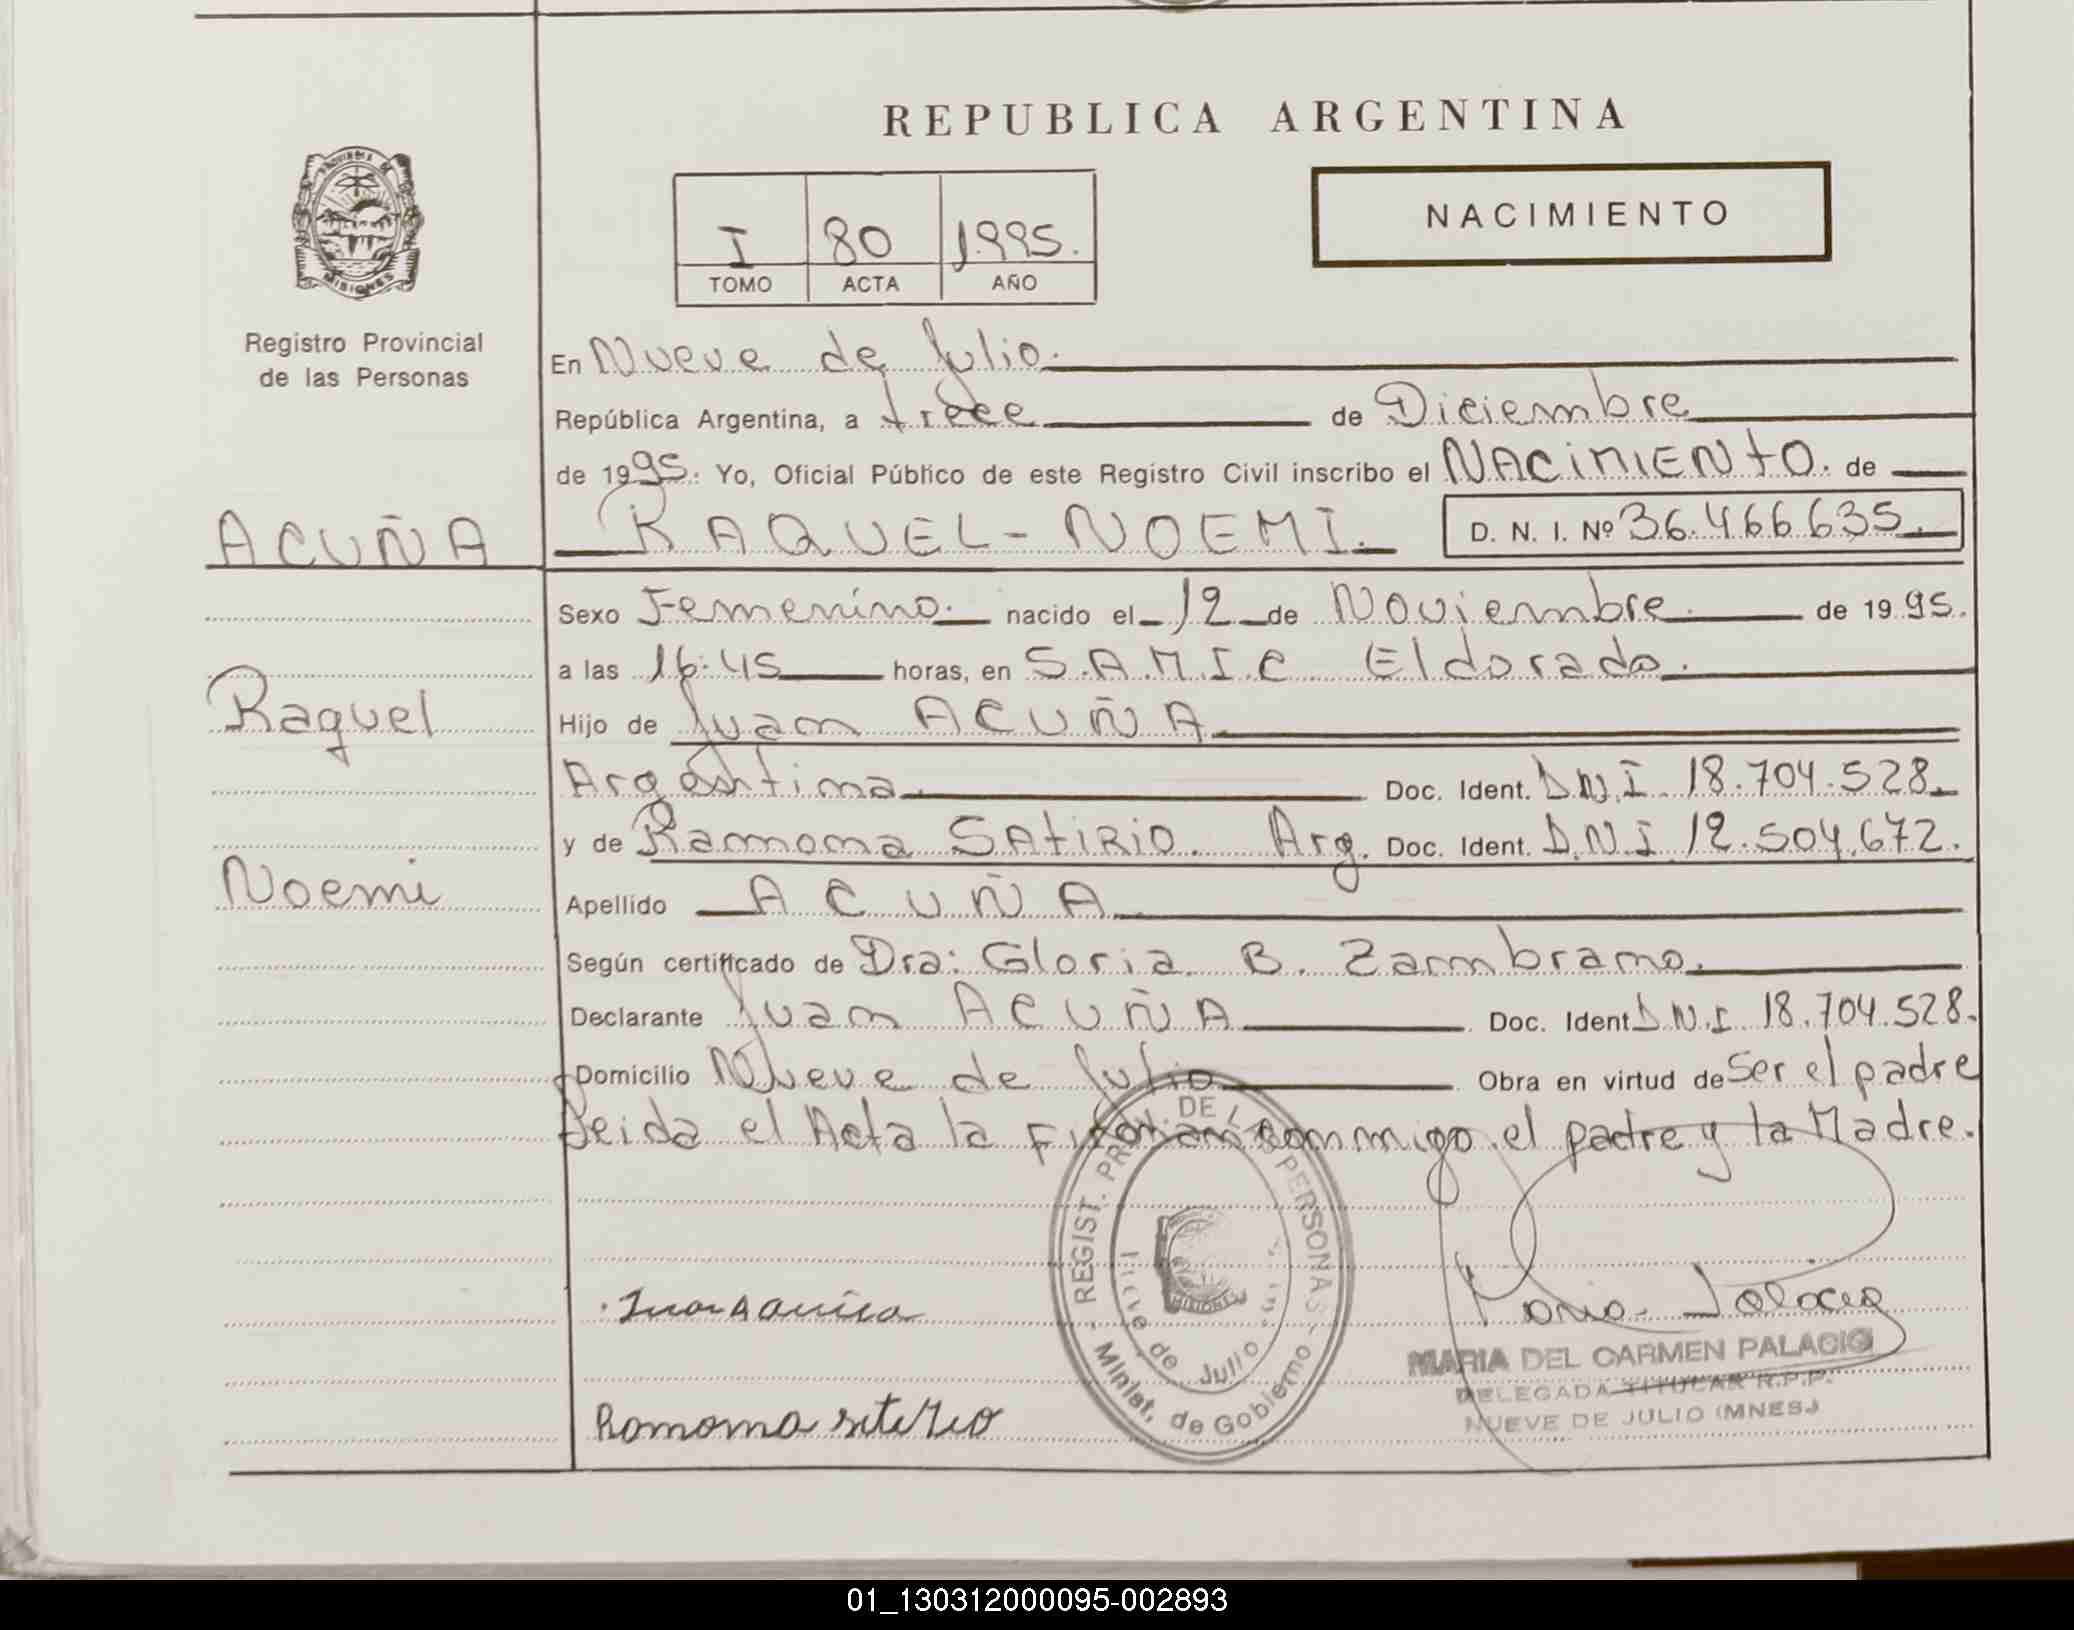 REPUBLICA ARGENTINA
PROVINCIA DE
MISIONES
Registro Provincial
de las Personas
I 80 1995.
TOMO ACTA AÑO
NACIMIENTO
En Nueve de Julio.
República Argentina, a trece de Diciembre
de 1995. Yo, Oficial Público de este Registro Civil inscribo el NACIMIENTO. de
ACUÑA
RAQUEL-NOEMI. D. N. I. Nº 36.466.635.
Sexo Femenino. nacido el 12 de Noviembre. de 1995.
a las 16:45 horas, en S.A.M.I.C Eldorado.
Raquel
Hijo de Juan ACUÑA
Argentina. Doc. Ident. D.N.I. 18.704.528.
y de Ramona SATIRIO. Arg. Doc. Ident. D.N.I 12.504.672.
Noemi
Apellido ACUÑA
Según certificado de Dra: Gloria B. Zambrano.
Declarante Juan ACUÑA Doc. Ident D.N.I. 18.704.528.
Domicilio Nueve de Julio Obra en virtud de Ser el padre
Leida el Acta la Firman conmigo el padre y la Madre.
REGIST. PROV. DE LAS PERSONAS
- Minist. de Gobierno -
Nueve de Julio
MISIONES
Juan Acuña
MARIA DEL CARMEN PALACIO
DELEGADA TITULAR R.P.P.
NUEVE DE JULIO (MNES.)
Ramona
01_130312000095-002893